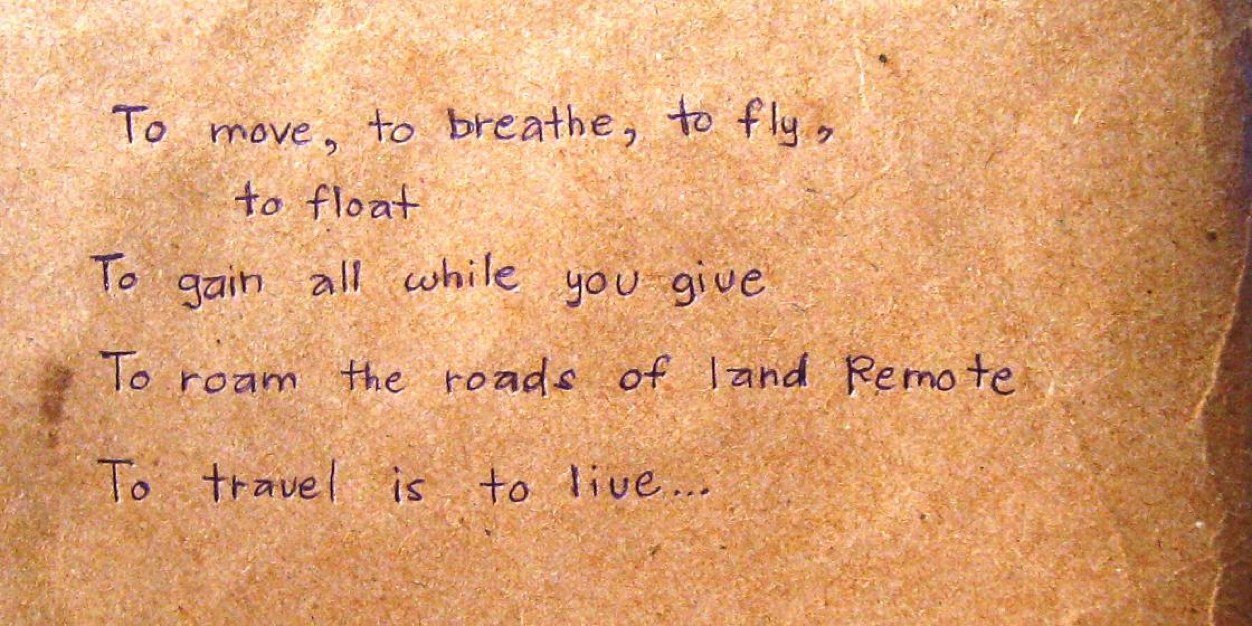 To move, to breathe, to fly,
to float
To gain all while you give
To roam the roads of land Remote
To travel is to live...